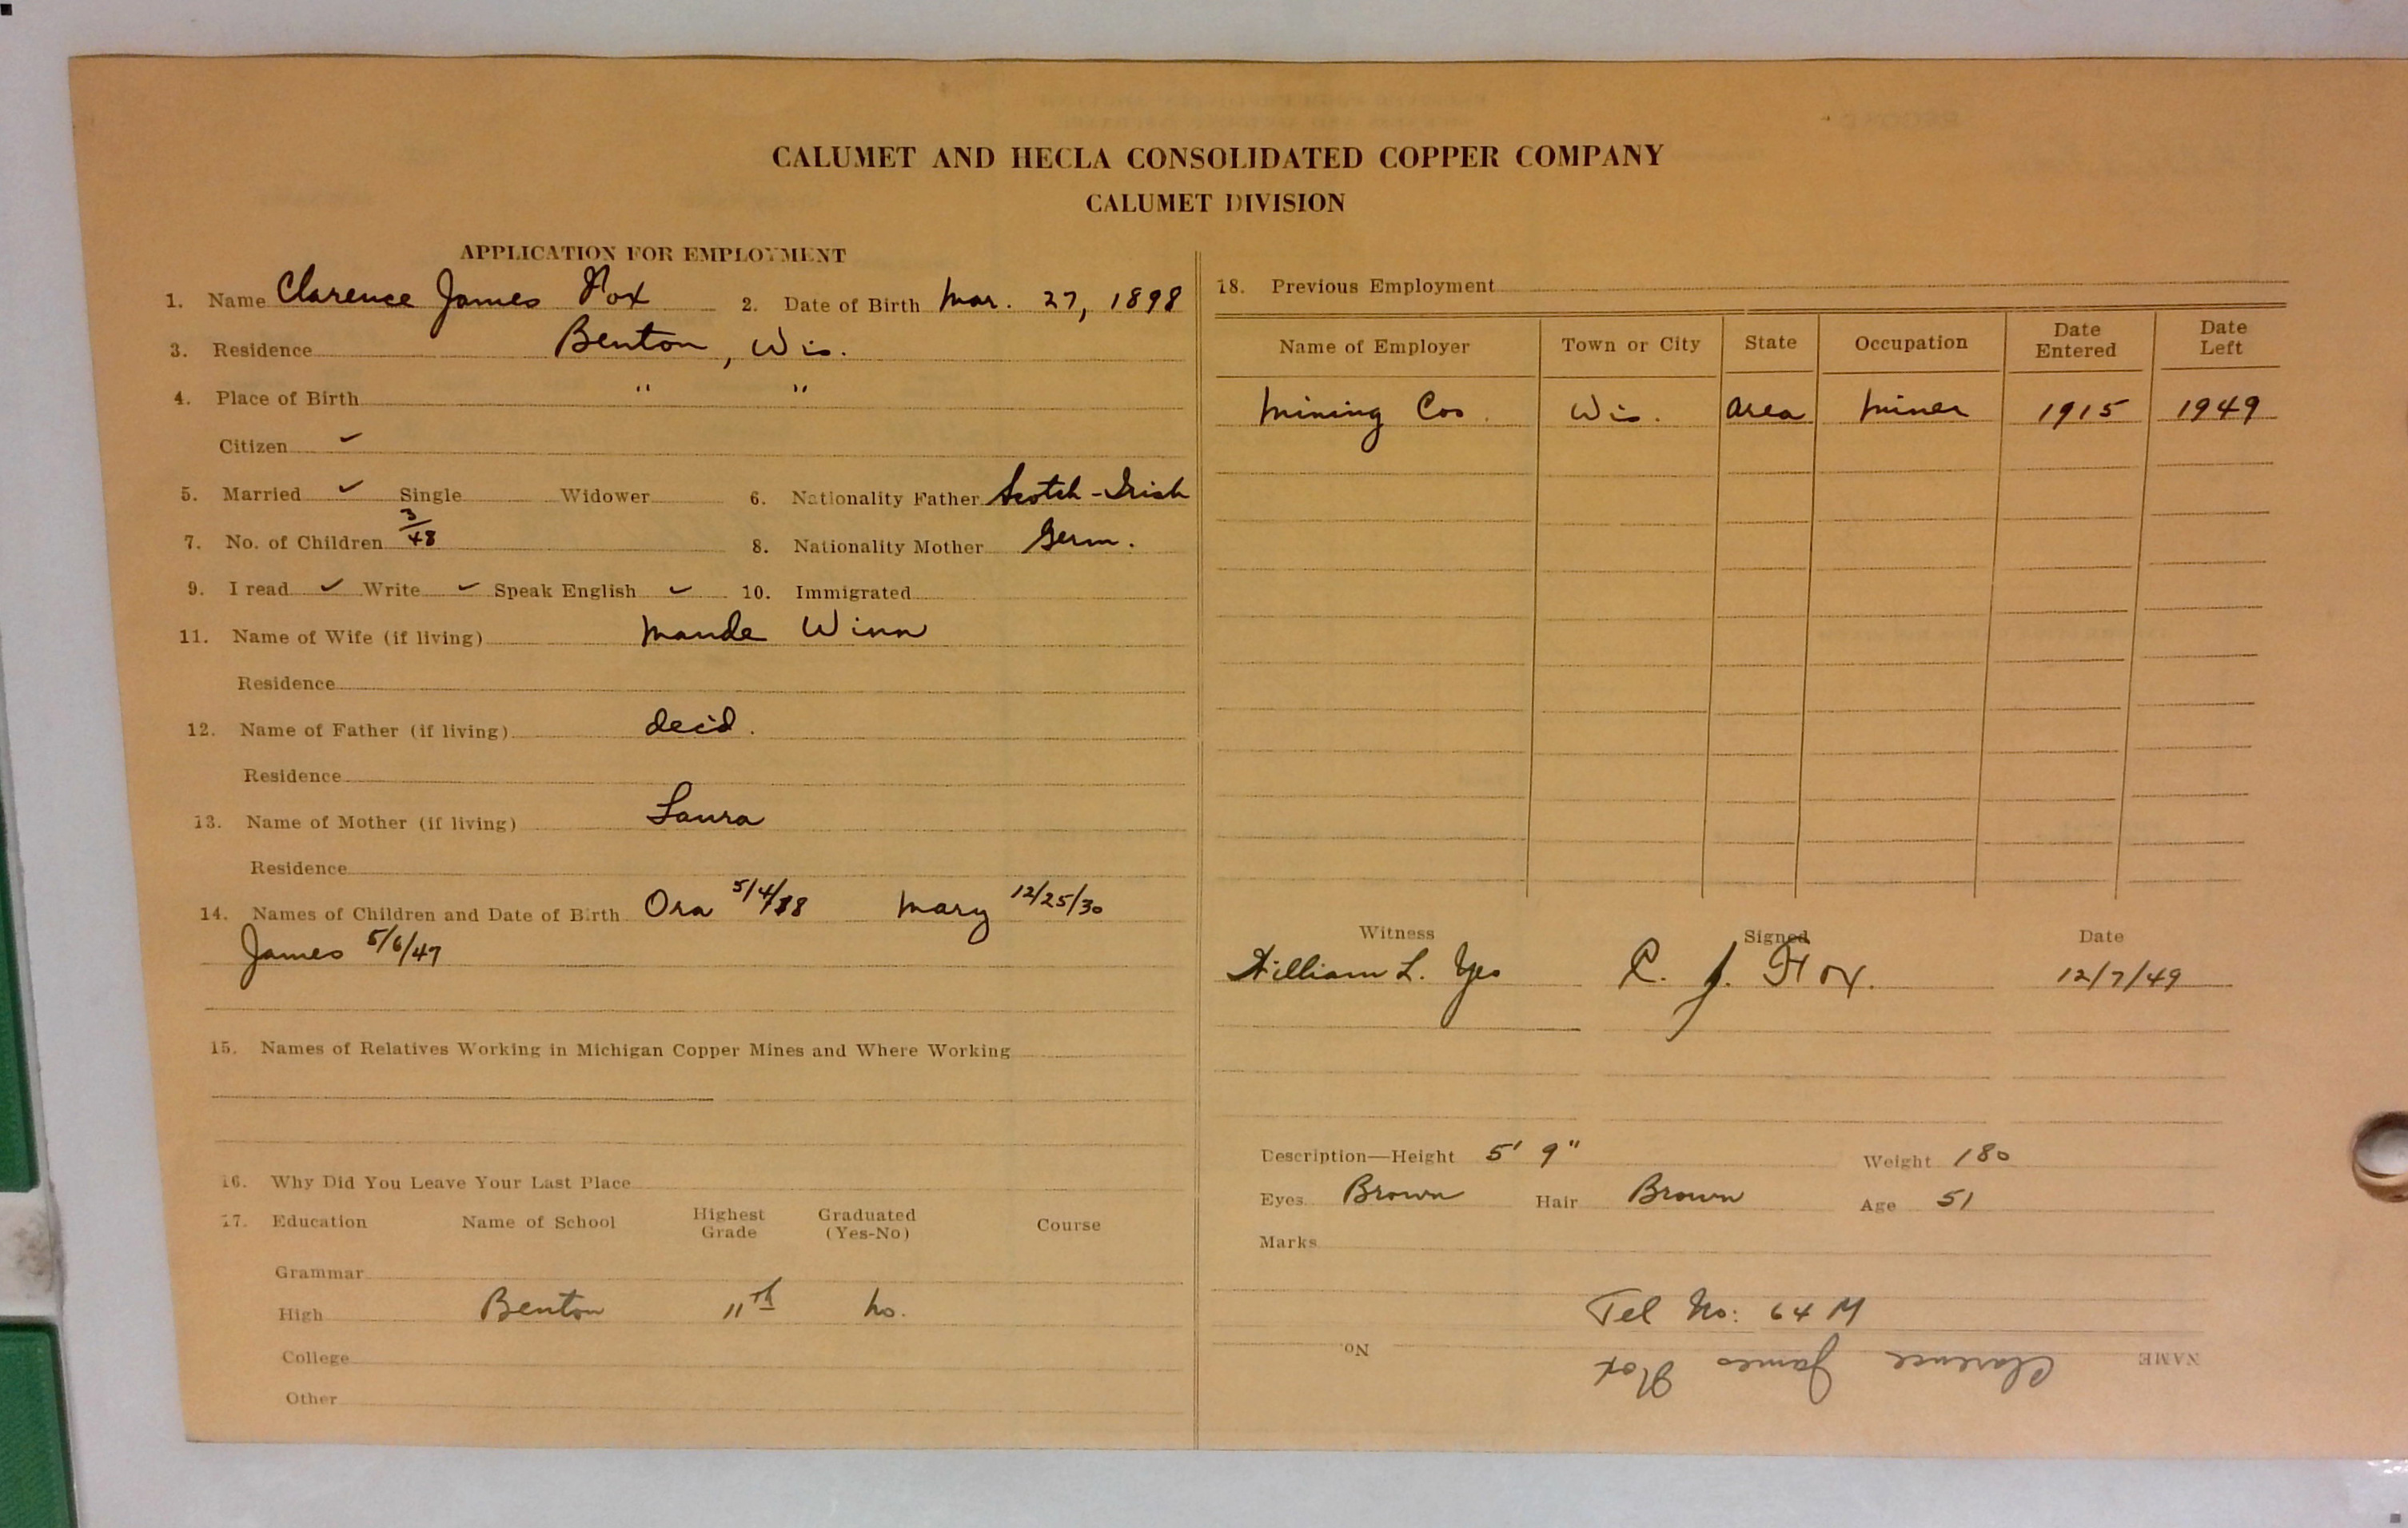 CALUMET AND HECLA CONSOLIDATED COPPER COMPANY
CALUMET DIVISION
APPLICATION FOR EMPLOYMENT
1. Name Clarence James Fox 2. Date of Birth Mar. 27, 1898
3. Residence Benton, Wis.
4. Place of Birth " "
Citizen ✓
5. Married ✓ Single Widower 6. Nationality Father Scotch-Irish
7. No. of Children 3 8. Nationality Mother Germ.
9. I read ✓ Write ✓ Speak English ✓ 10. Immigrated
11. Name of Wife (if living) Maude Winn
Residence
12. Name of Father (if living) dec'd.
Residence
13. Name of Mother (if living) Laura
Residence
14. Names of Children and Date of Birth Ora Mary 12/25/30
James 5/6/47
15. Names of Relatives Working in Michigan Copper Mines and Where Working
16. Why Did You Leave Your Last Place
17. Education Name of School Highest Grade Graduated (Yes-No) Course
Grammar
High Benton 11th No.
College
Other
18. Previous Employment
Name of Employer Town or City State Occupation Date Entered Date Left
Mining Cos. Wis. Area Miner 1915 1949
Witness Signed Date
William L. C. J. Fox. 12/7/49
Description—Height 5' 9" Weight 180
Eyes Brown Hair Brown Age 51
Marks
Tel No: 64 M
NAME Clarence James Fox No.